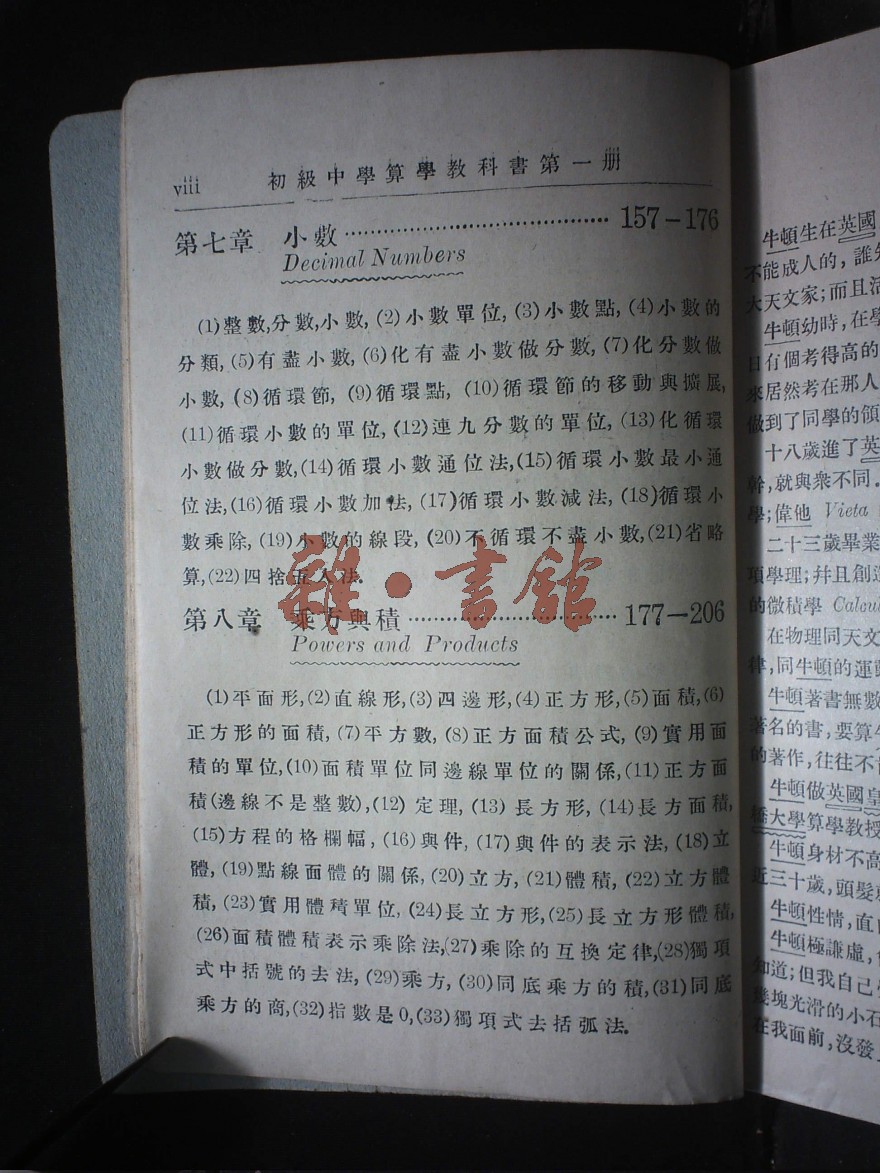 viii 初級中學算學教科書第一册
第七章 小數 157－176
Decimal Numbers
(1)整數,分數,小數, (2)小數單位, (3)小數點, (4)小數的
分類, (5)有盡小數, (6)化有盡小數做分數, (7)化分數做
小數, (8)循環節, (9)循環點, (10)循環節的移動與擴展,
(11)循環小數的單位, (12)連九分數的單位, (13)化循環
小數做分數,(14)循環小數通位法,(15)循環小數最小通
位法,(16)循環小數加法, (17)循環小數減法, (18)循環小
數乘除, (19)小數的線段, (20)不循環不盡小數,(21)省略
算,(22)四捨五入法.
雜·書館
第八章 乘方與積 177—206
Powers and Products
(1)平面形,(2)直線形,(3)四邊形,(4)正方形,(5)面積,(6)
正方形的面積, (7)平方數, (8)正方面積公式, (9)實用面
積的單位,(10)面積單位同邊線單位的關係,(11)正方面
積(邊線不是整數),(12)定理, (13)長方形, (14)長方面積,
(15)方程的格欄幅, (16)與件, (17)與件的表示法, (18)立
體, (19)點線面體的關係, (20)立方, (21)體積, (22)立方體
積, (23)實用體積單位, (24)長立方形,(25)長立方形體積,
(26)面積體積表示乘除法,(27)乘除的互換定律,(28)獨項
式中括號的去法, (29)乘方, (30)同底乘方的積,(31)同底
乘方的商,(32)指數是0,(33)獨項式去括弧法.
牛頓生在英國
不能成人的, 誰
大天文家; 而且
牛頓幼時, 在學
日有個考得高的
來居然考在那人
做到了同學的領
十八歲進了英
幹,就與衆不同.
學; 偉他 Vieta
二十三歲畢業
項學理; 幷且創造
的微積學
在物理同天文
律, 同牛頓的運
牛頓著書無數
著名的書, 要算
的著作, 往往不
牛頓做英國皇
橋大學算學教授
牛頓身材不高
近三十歲, 頭髮
牛頓性情, 直
牛頓極謙虛,
知道; 但我自己
幾塊光滑的小石
在我面前, 沒發